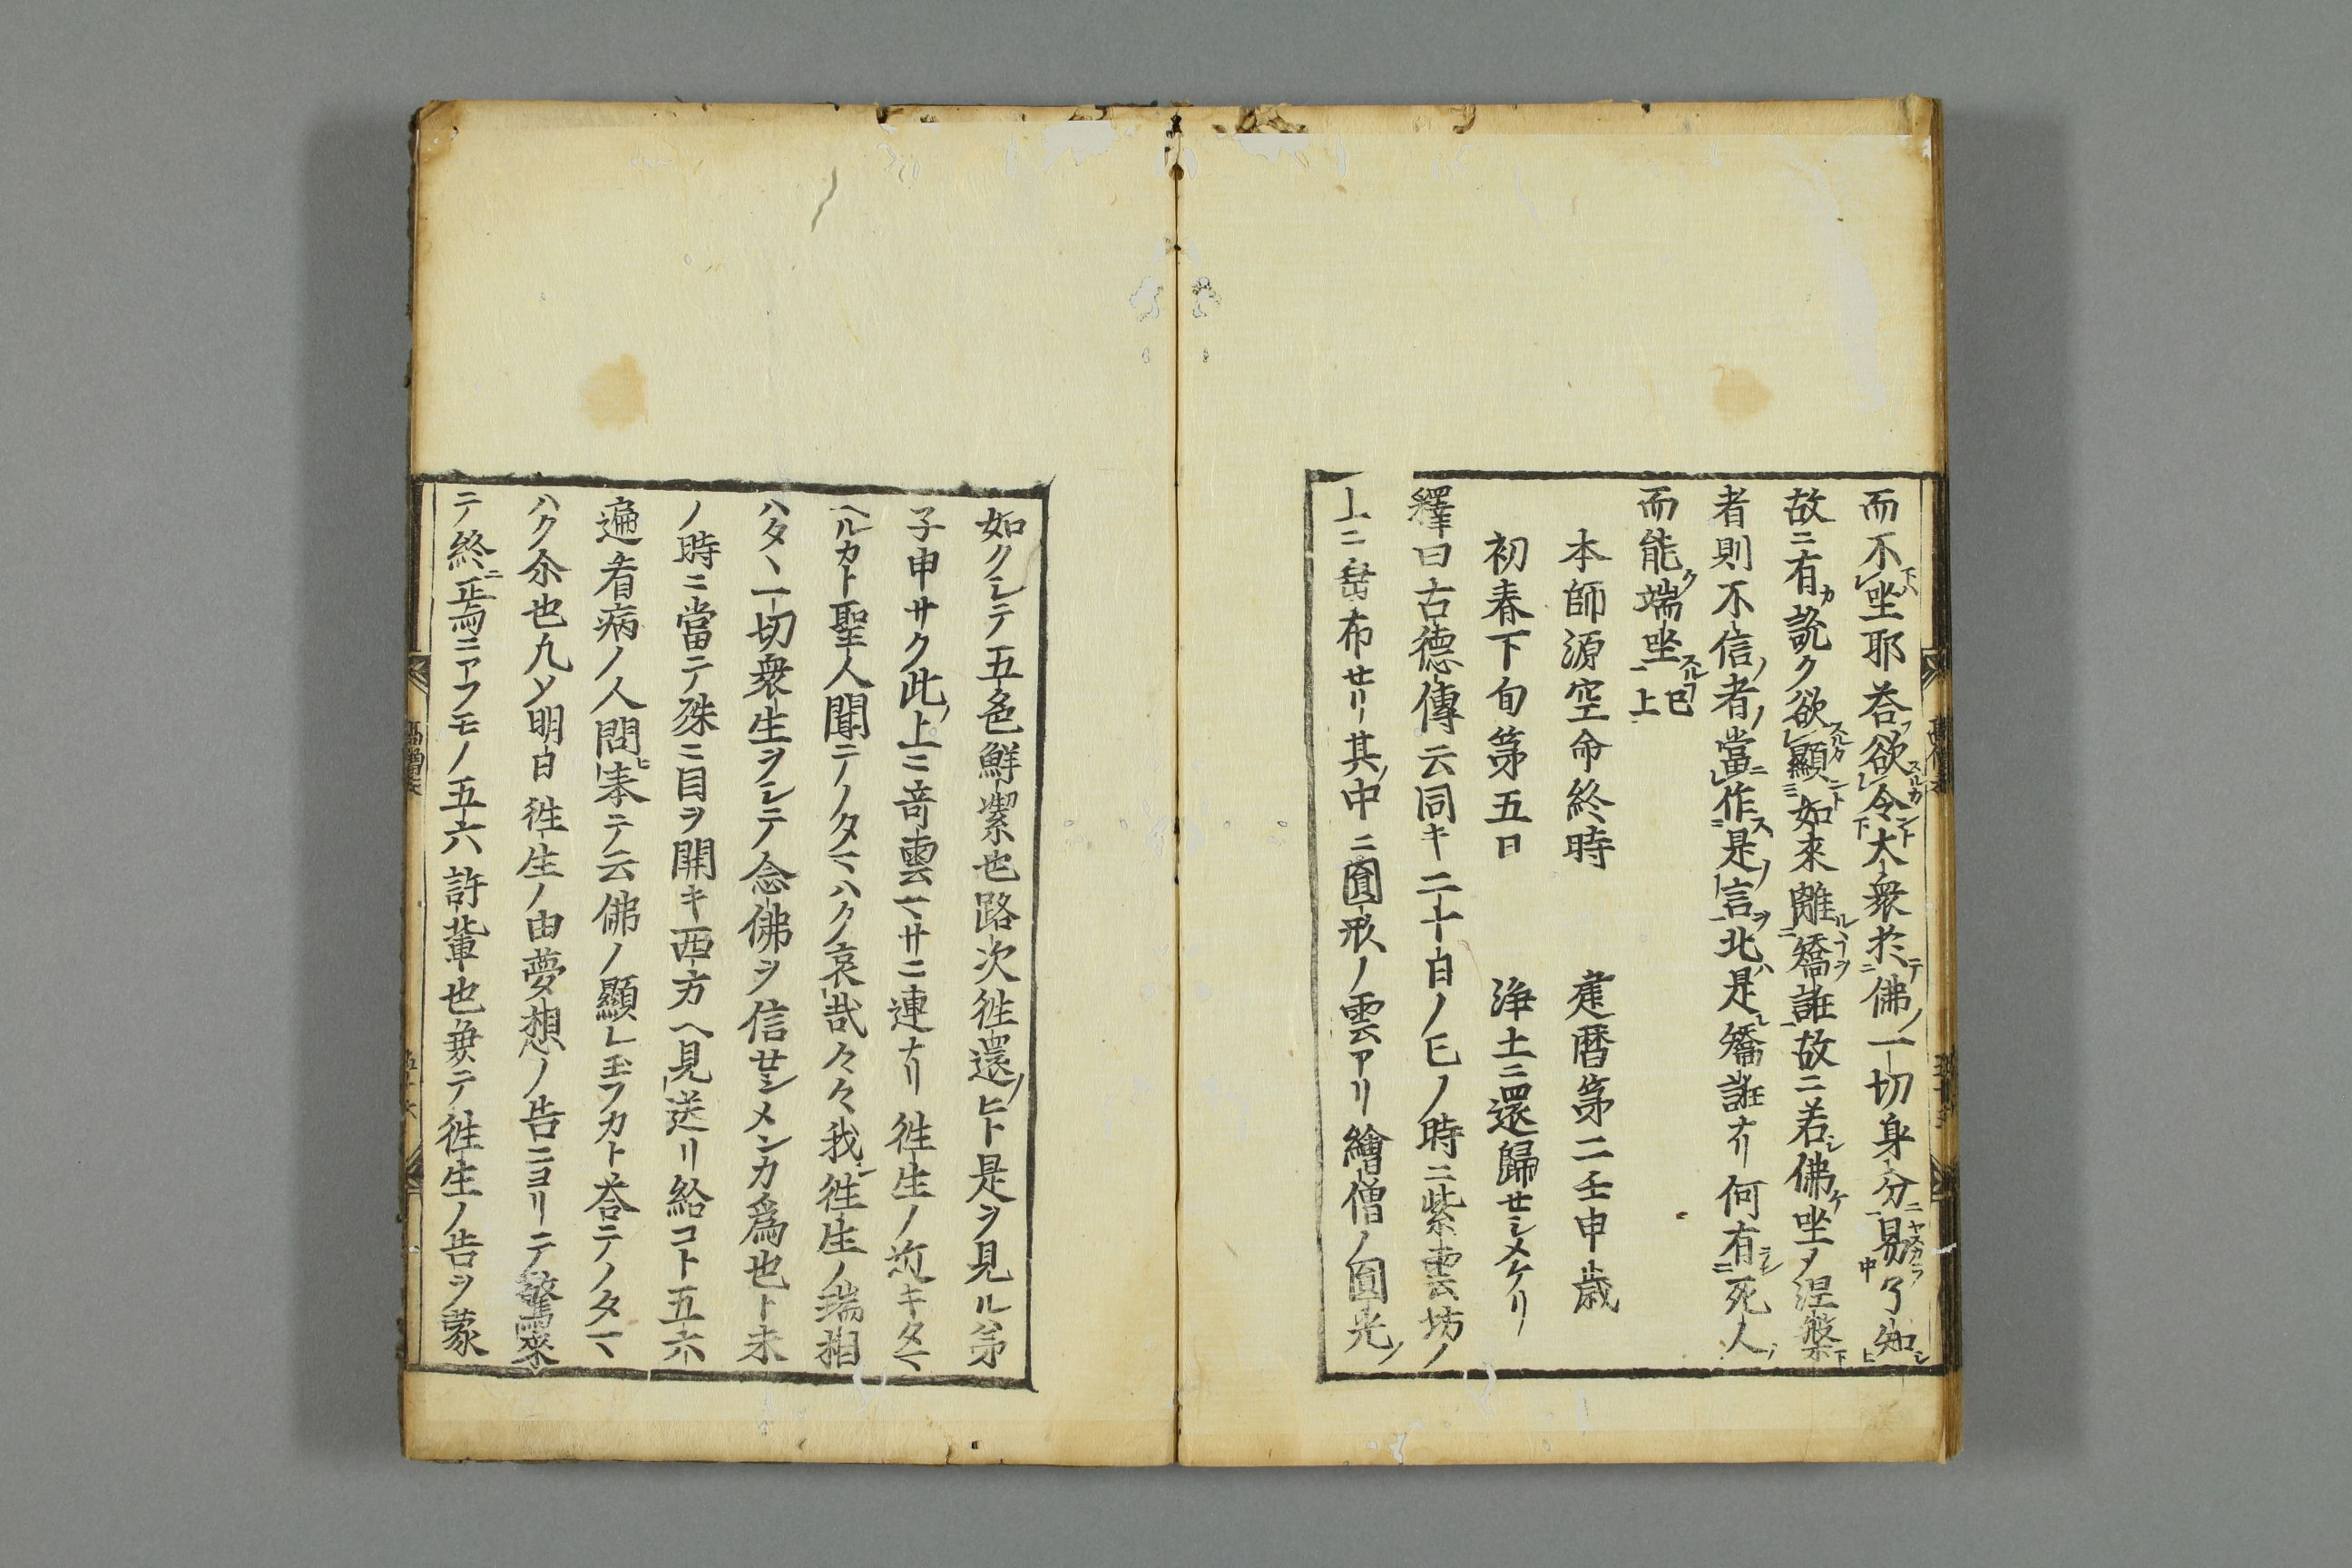 而不坐耶荅欲令大衆於佛一切身分易了知
故ニ有說ク欲顯如來離矯誑故ニ若佛坐ヲ涅槃
者則不信者當作是言北是矯誑ナリ何有死人
而能端坐已上
本師源空命終時　建暦第二壬申歳
初春下旬第五日　淨土ニ還歸セシメケリ
釋曰古德傳云同キ二十日ノ巳ノ時ニ紫雲坊ノ
上ニ㟴布セリ其中ニ圓形ノ雲アリ繪僧ノ圓光ノ
如クシテ五色鮮潔也路次徃還ノヒト是ヲ見ル弟
子申サク此上ニ竒雲マサニ連ナリ徃生ノ近キタマ
ヘルカト聖人聞テノタマハク哀哉々々我徃生ノ瑞相
ハタヽ一切衆生ヲシテ念佛ヲ信セシメンカ爲也ト未
ノ時ニ當テ殊ニ目ヲ開キ西方ヘ見送リ給コト五六
遍看病ノ人問奉テ云佛ノ顯レ玉フカト荅テノタマ
ハク尒也凡ソ明日徃生ノ由夢想ノ告ニヨリテ驚來
テ終焉ニアフモノ五六許輩也兼テ徃生ノ告ヲ蒙